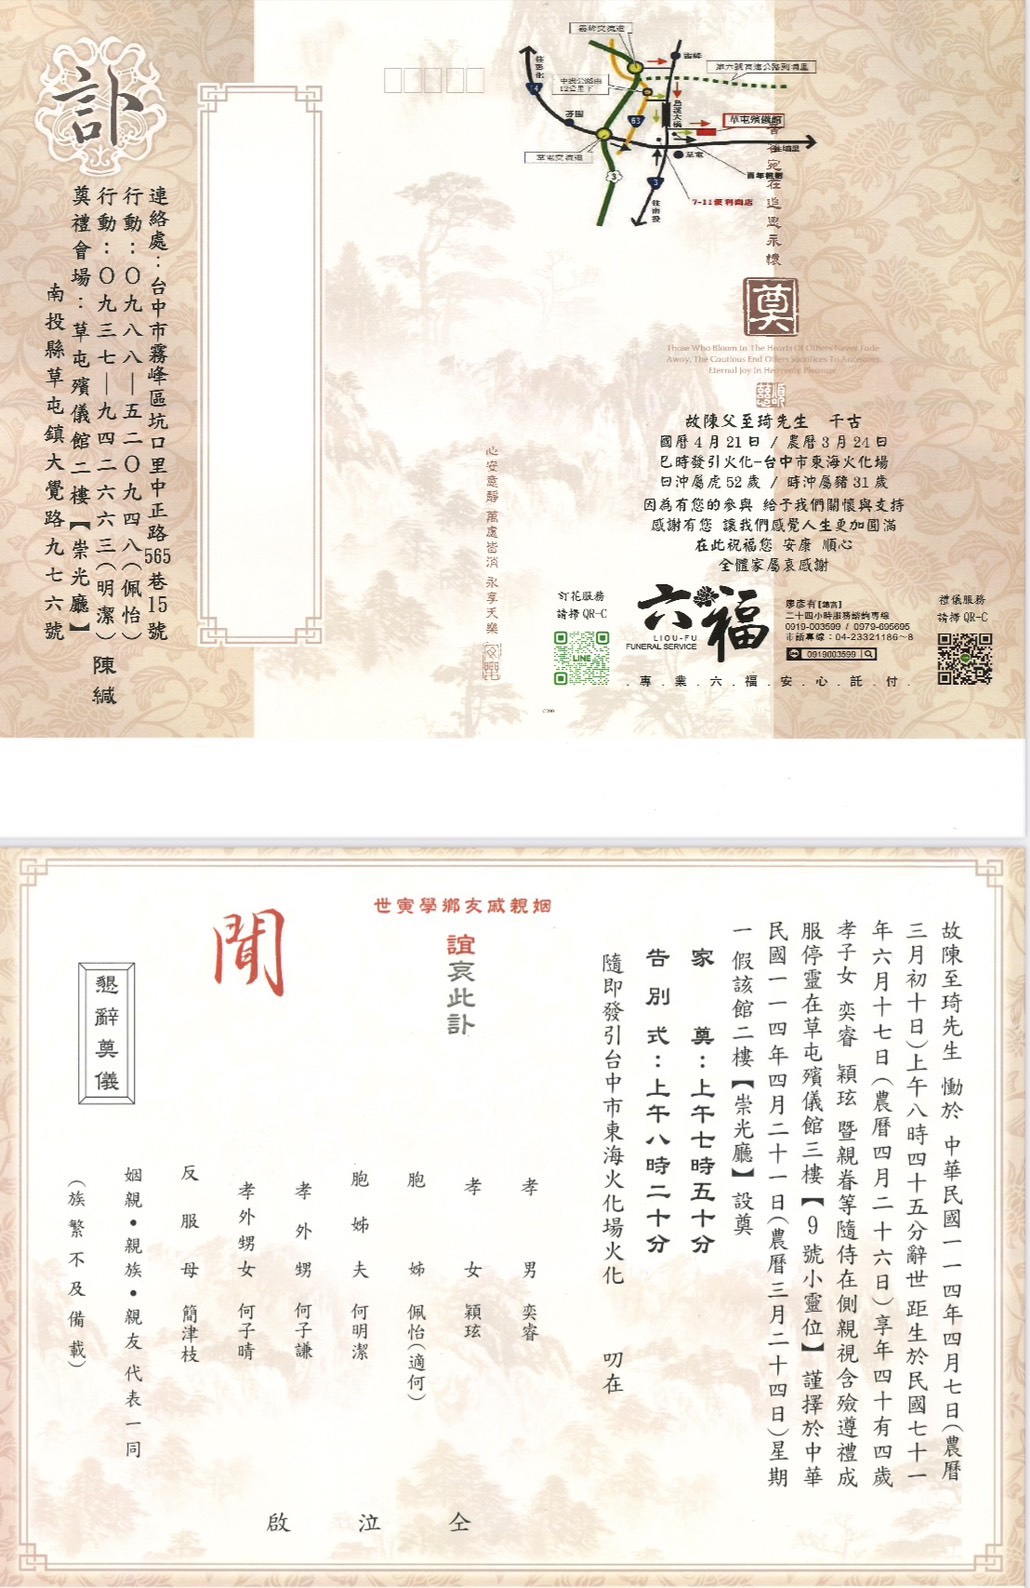 訃
連絡處：台中市霧峰區坑口里中正路565巷15號
行動：０九八八—五二０九四八（佩怡）
行動：０九三七—九四二六六三（明潔）
奠禮會場：草屯殯儀館二樓【崇光廳】
南投縣草屯鎮大覺路九七六號
陳緘
霧峰交流道
往彰化
中投公路由
12公里下
第六號高速公路到埔里
茄園
63
烏溪大橋
草屯殯儀館
草屯交流道
草屯
往埔里
百年檳榔
3
3
往南投
7-11便利商店
音容宛在 追思永懷
奠
Those Who Bloom In The Hearts Of Others Never Fade
Away, The Cautious End Offers Sacrifices To Ancestors,
Eternal Joy In Heavenly Pleasure
故陳父至琦先生　千古
國曆4月21日 / 農曆3月24日
巳時發引火化-台中市東海火化場
日沖屬虎52歲 / 時沖屬豬31歲
因為有您的參與 給予我們關懷與支持
感謝有您 讓我們感覺人生更加圓滿
在此祝福您 安康 順心
全體家屬哀感謝
心安意靜 萬處皆消 永享天樂
訂花服務
請掃QR-C
LINE
六福
LIOU-FU
FUNERAL SERVICE
廖彥有
二十四小時服務諮詢專線
0919-003599 / 0979-695695
市話專線：04-23321186~8
0919003599
禮儀服務
請掃QR-C
.專.業.六.福.安.心.託.付.
故陳至琦先生 慟於 中華民國一一四年四月七日（農曆
三月初十日）上午八時四十五分辭世 距生於民國七十一
年六月十七日（農曆四月二十六日）享年四十有四歲
孝子女 奕睿 穎玹 暨親眷等隨侍在側親視含殮遵禮成
服停靈在草屯殯儀館三樓【9號小靈位】謹擇於中華
民國一一四年四月二十一日（農曆三月二十四日）星期
一假該館二樓【崇光廳】設奠
家奠：上午七時五十分
告別式：上午八時二十分
隨即發引台中市東海火化場火化　叨在
世寅學鄉友戚親姻
誼哀此訃
聞
懇辭奠儀
孝男 奕睿
孝女 穎玹
胞姊 佩怡（適何）
胞姊夫 何明潔
孝外甥 何子謙
孝外甥女 何子晴
反服母 簡津枝
姻親•親族•親友 代表一同
（族繁不及備載）
仝泣啟